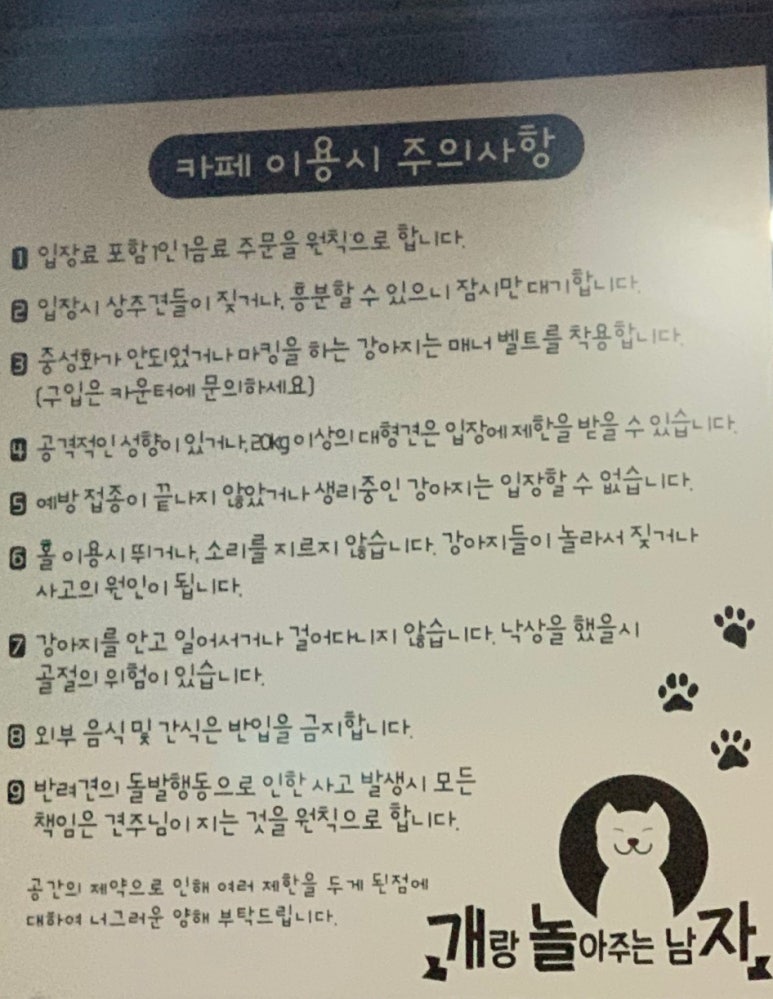 카페 이용시 주의사항
1 입장료 포함 1인 1음료 주문을 원칙으로 합니다.
2 입장시 상주견들이 짖거나, 흥분할 수 있으니 잠시만 대기합니다.
3 중성화가 안되었거나 마킹을 하는 강아지는 매너 벨트를 착용합니다.
(구입은 카운터에 문의하세요)
4 공격적인 성향이 있거나, 20kg 이상의 대형견은 입장에 제한을 받을 수 있습니다.
5 예방 접종이 끝나지 않았거나 생리중인 강아지는 입장할 수 없습니다.
6 홀 이용시 뛰거나, 소리를 지르지 않습니다. 강아지들이 놀라서 짖거나
사고의 원인이 됩니다.
7 강아지를 안고 일어서거나 걸어다니지 않습니다. 낙상을 했을시
골절의 위험이 있습니다.
8 외부 음식 및 간식은 반입을 금지합니다.
9 반려견의 돌발행동으로 인한 사고 발생시 모든
책임은 견주님이 지는 것을 원칙으로 합니다.
공간의 제약으로 인해 여러 제한을 두게 된점에
대하여 너그러운 양해 부탁드립니다.
개랑 놀아주는 남자